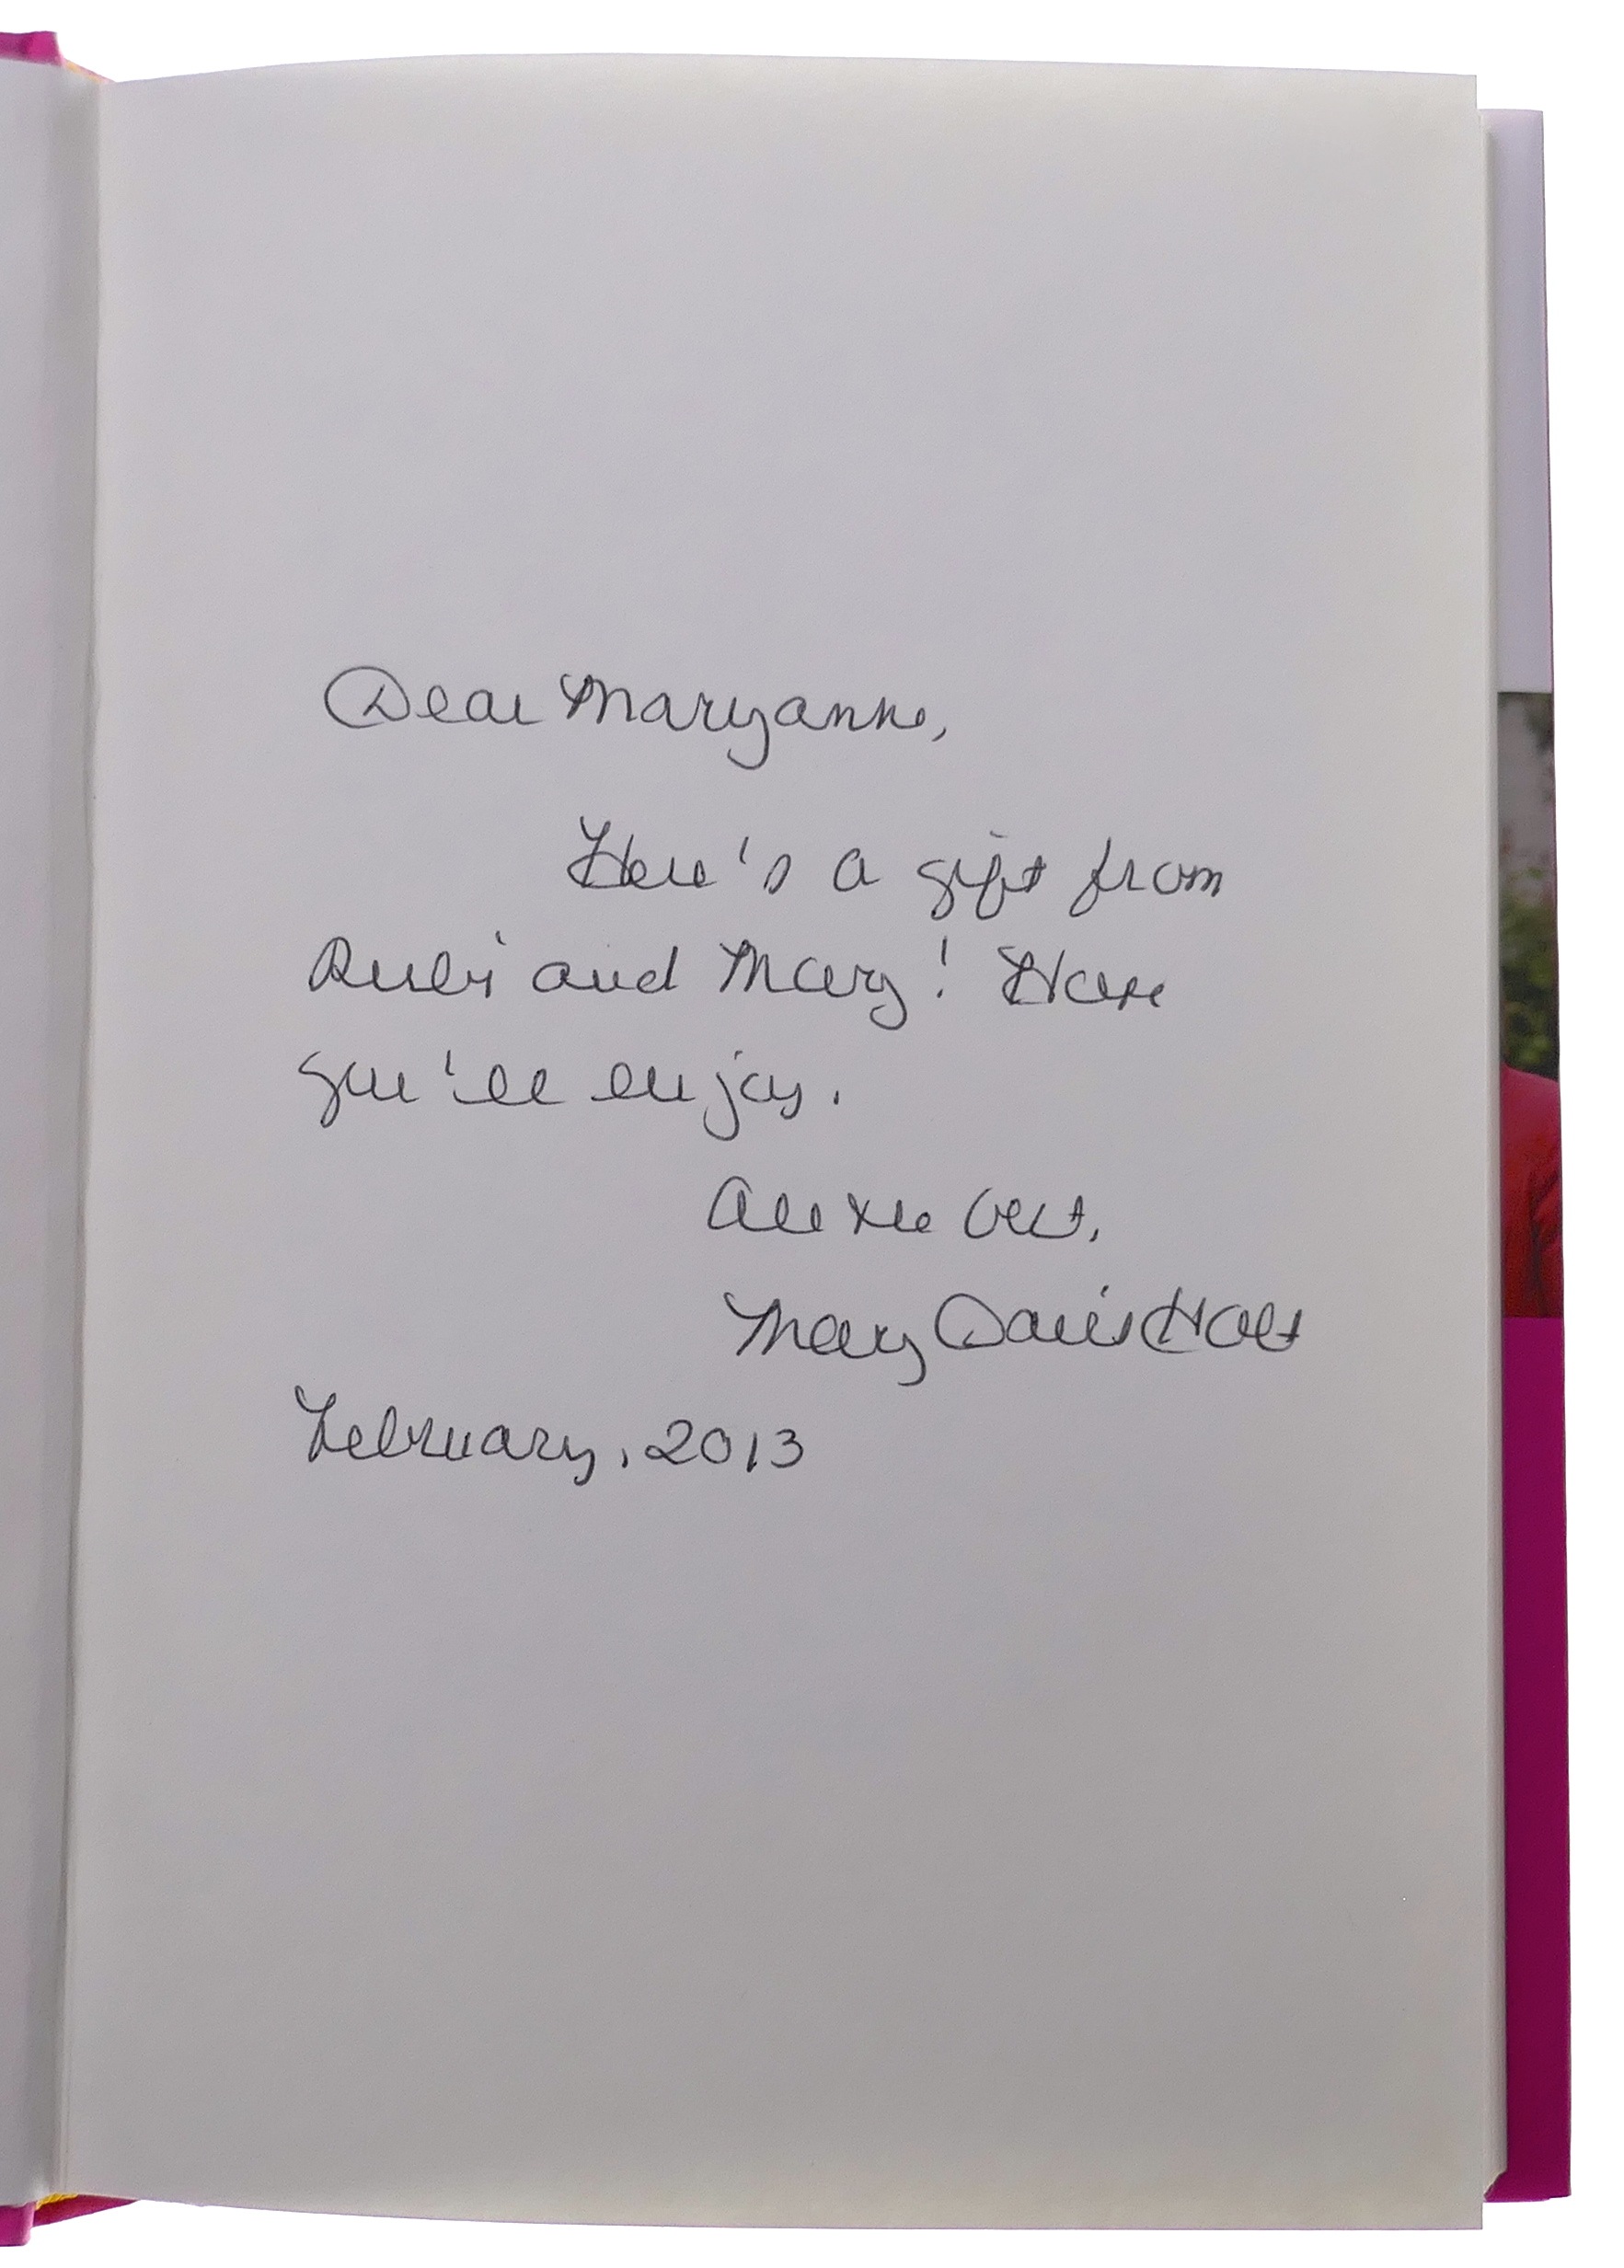 Dear Maryanne,
Here's a gift from
Rubi and Mary! Hope
you'll enjoy.
All the best,
Mary Davis Holt
February, 2013